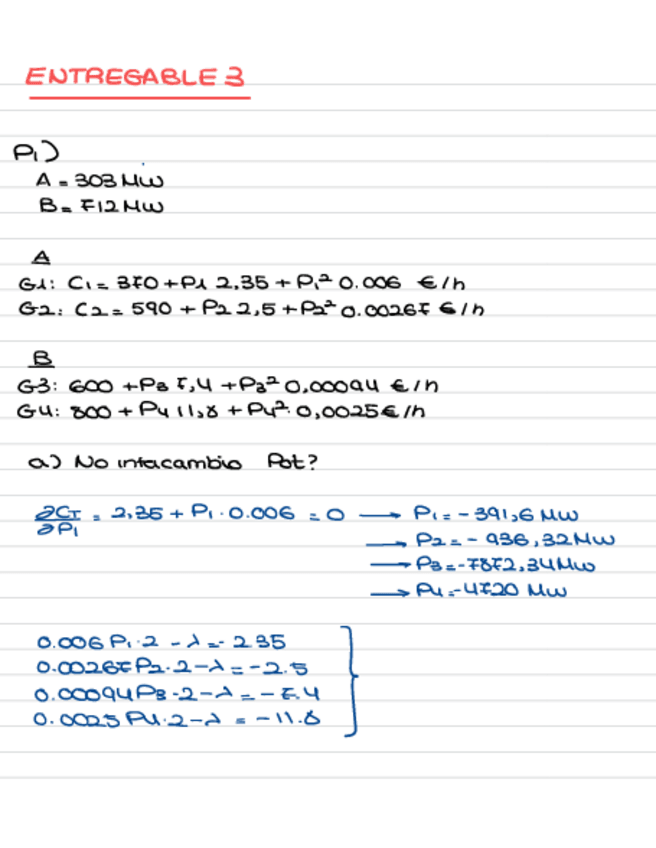 ENTREGABLE 3
P1)
A = 303 MW
B = 712 MW
A
G1: C1 = 370 + P1 2,35 + P1² 0.006 €/h
G2: C2 = 590 + P2 2,5 + P2² 0.00267 €/h
B
G3: 600 + P3 7,4 + P3² 0,00094 €/h
G4: 800 + P4 11,8 + P4². 0,0025 €/h
a) No intercambio Pot?
∂CT/∂P1 = 2,35 + P1 · 0.006 = 0 → P1 = - 391,6 MW
→ P2 = - 936,32 MW
→ P3 = - 7872,34 MW
→ P4 = - 4720 MW
0.006 P1 · 2 - λ = - 2.35
0.00267 P2 · 2 - λ = - 2.5
0.00094 P3 · 2 - λ = - 7.4
0.0025 P4 · 2 - λ = - 11.8